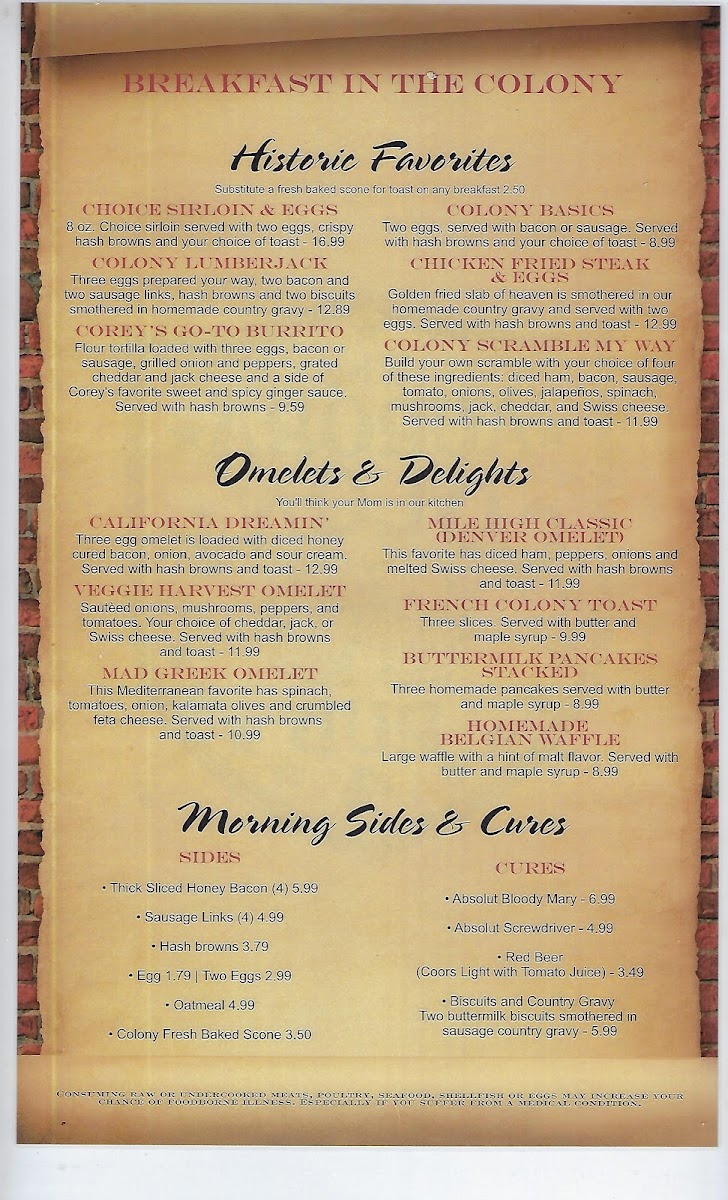 BREAKFAST IN THE COLONY
Historic Favorites
Substitute a fresh baked scone for toast on any breakfast 2.50
CHOICE SIRLOIN & EGGS
8 oz. Choice sirloin served with two eggs, crispy
hash browns and your choice of toast - 16.99
COLONY LUMBERJACK
Three eggs prepared your way, two bacon and
two sausage links, hash browns and two biscuits
smothered in homemade country gravy - 12.89
COREY'S GO-TO BURRITO
Flour tortilla loaded with three eggs, bacon or
sausage, grilled onion and peppers, grated
cheddar and jack cheese and a side of
Corey's favorite sweet and spicy ginger sauce.
Served with hash browns - 9.59
COLONY BASICS
Two eggs, served with bacon or sausage. Served
with hash browns and your choice of toast - 8.99
CHICKEN FRIED STEAK
& EGGS
Golden fried slab of heaven is smothered in our
homemade country gravy and served with two
eggs. Served with hash browns and toast - 12.99
COLONY SCRAMBLE MY WAY
Build your own scramble with your choice of four
of these ingredients: diced ham, bacon, sausage,
tomato, onions, olives, jalapeños, spinach,
mushrooms, jack, cheddar, and Swiss cheese.
Served with hash browns and toast - 11.99
Omelets & Delights
You'll think your Mom is in our kitchen
CALIFORNIA DREAMIN'
Three egg omelet is loaded with diced honey
cured bacon, onion, avocado and sour cream.
Served with hash browns and toast - 12.99
VEGGIE HARVEST OMELET
Sautéed onions, mushrooms, peppers, and
tomatoes. Your choice of cheddar, jack, or
Swiss cheese. Served with hash browns
and toast - 11.99
MAD GREEK OMELET
This Mediterranean favorite has spinach,
tomatoes, onion, kalamata olives and crumbled
feta cheese. Served with hash browns
and toast - 10.99
MILE HIGH CLASSIC
(DENVER OMELET)
This favorite has diced ham, peppers, onions and
melted Swiss cheese. Served with hash browns
and toast - 11.99
FRENCH COLONY TOAST
Three slices. Served with butter and
maple syrup - 9.99
BUTTERMILK PANCAKES
STACKED
Three homemade pancakes served with butter
and maple syrup - 8.99
HOMEMADE
BELGIAN WAFFLE
Large waffle with a hint of malt flavor. Served with
butter and maple syrup - 8.99
Morning Sides & Cures
SIDES
• Thick Sliced Honey Bacon (4) 5.99
• Sausage Links (4) 4.99
• Hash browns 3.79
• Egg 1.79 | Two Eggs 2.99
• Oatmeal 4.99
• Colony Fresh Baked Scone 3.50
CURES
• Absolut Bloody Mary - 6.99
• Absolut Screwdriver - 4.99
• Red Beer
(Coors Light with Tomato Juice) - 3.49
• Biscuits and Country Gravy
Two buttermilk biscuits smothered in
sausage country gravy - 5.99
CONSUMING RAW OR UNDERCOOKED MEATS, POULTRY, SEAFOOD, SHELLFISH OR EGGS MAY INCREASE YOUR
CHANCE OF FOODBORNE ILLNESS. ESPECIALLY IF YOU SUFFER FROM A MEDICAL CONDITION.